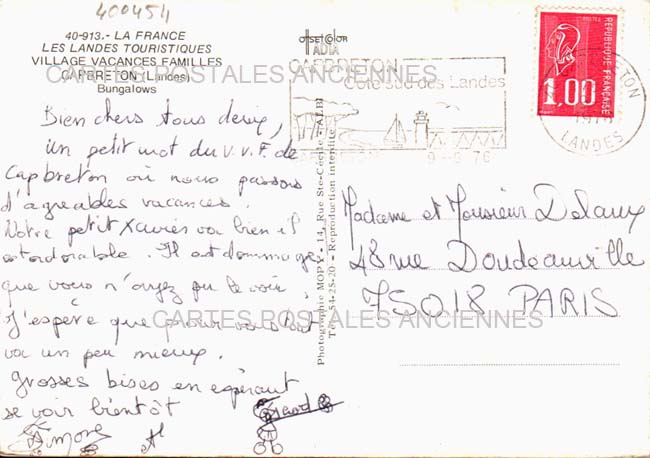 400454
40-913.- LA FRANCE
LES LANDES TOURISTIQUES
VILLAGE VACANCES FAMILLES
CAPBRETON (Landes)
Bungalows
CARTES POSTALES ANCIENNES
OFFSET COLOR
CAPBRETON
Côte sud des Landes
9-6 76
POSTES
REPUBLIQUE FRANÇAISE
1.00
LANDES
Bien chers tous deux,
Un petit mot du V.V.F. de
Capbreton où nous passons
d'agréables vacances.
Notre petit Xavier va bien il
est adorable. Il est dommage
que vous n'ayez pu le voir.
J'espère que pour vous tout
va un peu mieux.
Grosses bises en espérant
se voir bientôt
Simone
Photographie MOPY - 14, Rue Ste-Cécile - ALBI
Tél. 54-25-20 - Reproduction interdite
Madame et Monsieur Delaux
48 rue Doudeauville
75018 PARIS
CARTES POSTALES ANCIENNES